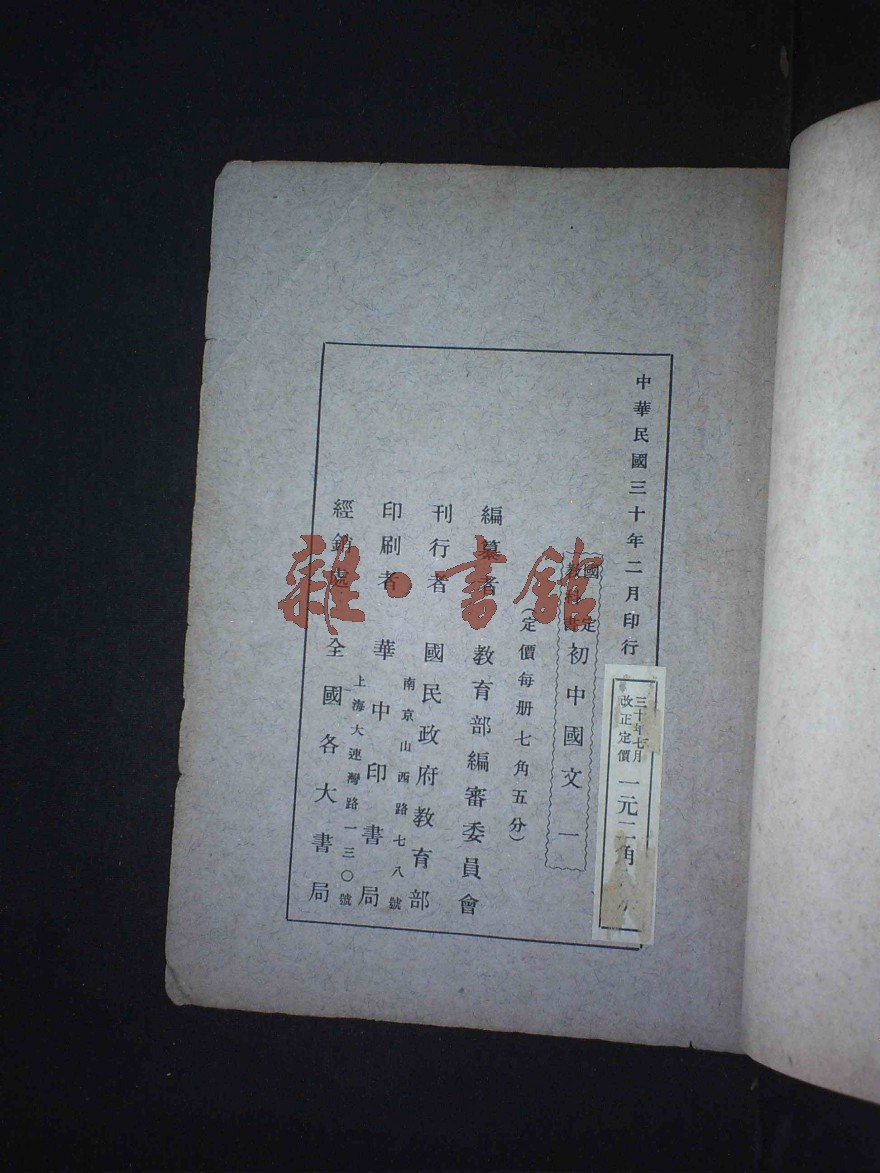 中華民國三十年二月印行
三十年七月
改正定價
一元二角
國定
教科書
初中國文 一
(定價每册七角五分)
編纂者 教育部編審委員會
刊行者 國民政府教育部
南京山西路七八號
印刷者 華中印書局
上海大連灣路一三〇號
經銷處 全國各大書局
雜·書館